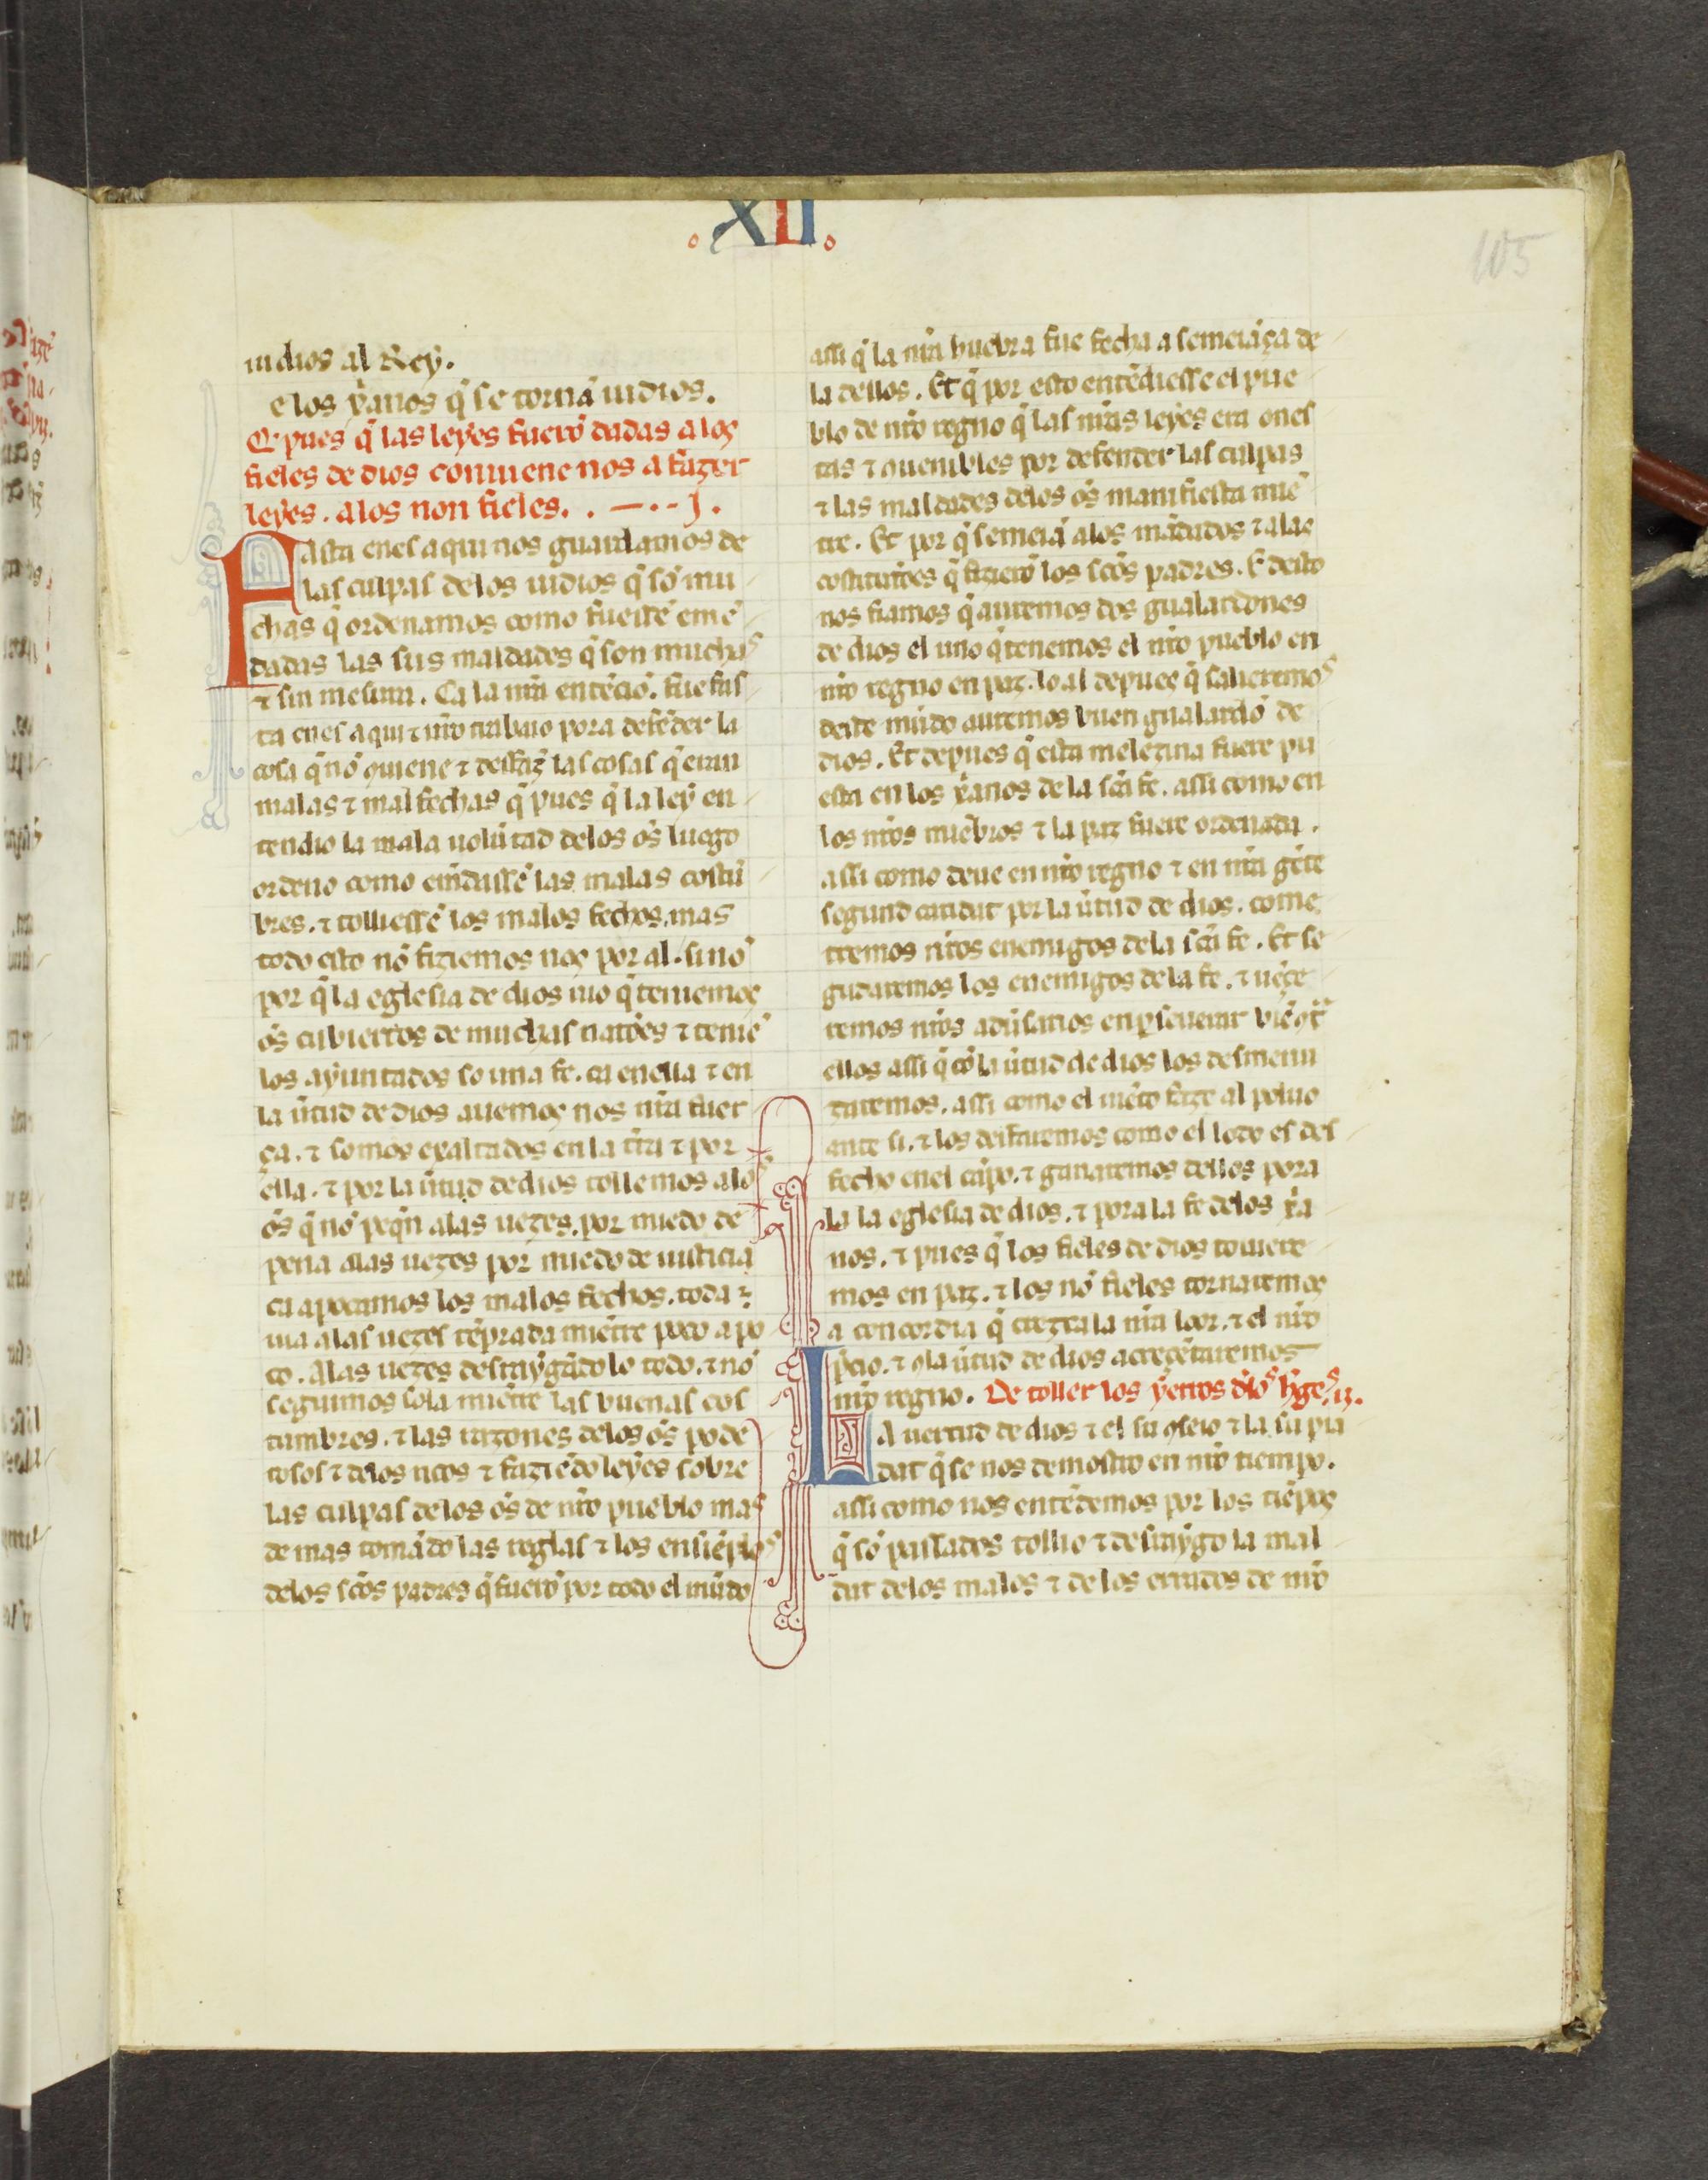 .XII.
105
iudios al Rey.
e los xp̃anos q̃ se tornã iudios.
E pues q̃ las leyes fuerõ dadas a los
fieles de dios conuiene nos a fazer
leyes. a los non fieles. . — . . j.
Fasta enes aqui nos guardamos de
las culpas delos iudios q̃ sõ mu
chas q̃ ordenamos como fuessẽ emẽ
dadas las sus maldades q̃ son muchas
⁊ sin mesura. Ca la nr̃a entẽciõ. fue fas
ta enes aqui ⁊ nr̃o trabaio pora defẽder la
cosa q̃ nõ ꝯuiene ⁊ desfaz̃ las cosas q̃ eran
malas ⁊ mal fechas q̃ pues q̃ la ley en
tendio la mala uolũtad delos oẽs luego
ordeno como emẽdassẽ las malas costũ
bres. ⁊ tolliessẽ los malos fechos. mas
todo esto nõ fiziemos nos por al. sinõ
por q̃ la eglesia de dios uio q̃ teniemos
oẽs cubiertos de muchas natiões ⁊ teniẽ
los ayuntados so una fe. ca en ella ⁊ en
la u̇tud de dios auemos nos nr̃a fuer
ça. ⁊ somos exaltados en la tr̃ra ⁊ por
ella. ⁊ por la u̇tud de dios tollemos a los
oẽs q̃ nõ peq̃n a las uezes. por miedo de
pena a las uezes por miedo de iusticia
ca apocamos los malos fechos. toda
uia a las uezes tẽprada miẽtre poco a po
co. A las uezes desraygãdo lo todo. ⁊ nõ
seguimos sola miẽtre las buenas cos
tumbres. ⁊ las razones delos oẽs pode
rosos ⁊ delos ricos ⁊ faziẽdo leyes sobre
las culpas de los oẽs de nr̃o pueblo mas
de mas tomãdo las reglas ⁊ los ensiẽplos
delos scõs padres q̃ fuerõ por todo el mũdo
assi q̃ la nr̃a huebra fue fecha a semeiãça de
la dellos. Et q̃ por esto entẽdiesse el pue
blo de nr̃o regno q̃ las nr̃as leyes erã ones
tas ⁊ ꝯuenibles por defender las culpas
⁊ las maldades delos oẽs manifiesta miẽ
tre. Et por q̃ semeiã a los mãdados ⁊ a las
costituciões q̃ fizierõ los scõs padres. E desto
nos fiamos q̃ auremos dos gualardones
de dios el uno q̃ tenemos el nr̃o pueblo en
nr̃o regno en paz. lo al depues q̃ salieremos
deste mũdo auremos buen gualardõ de
dios. Et depues q̃ esta melezina fuere pu
esta en los xp̃anos de la scã fe. assi como en
los nr̃os miẽbros ⁊ la paz fuere ordenada.
assi como deue en nr̃o regno ⁊ en nr̃a gẽte
segund caridat por la u̇tud de dios. come
tremos nr̃os enemigos de la scã fe. Et se
gudaremos los enemigos de la fe. ⁊ uẽçe
remos nr̃os adũsarios en ꝑseuerar biẽ ꝯtra
ellos assi q̃ cõ la u̇tud de dios los desmenu
zaremos. assi como el uiẽto faze al poluo
ante si. ⁊ los desfaremos como el lodo es des
fecho enel cãpo. ⁊ ganaremos dellos pora
la la eglesia de dios. ⁊ pora la fe delos xp̃a
nos. ⁊ pues q̃ los fieles de dios touiere
mos en paz. ⁊ los nõ fieles tornaremos
a concordia q̃ crezra la nr̃a loor. ⁊ el nr̃o
p̃cio. ⁊ ꝯ la u̇tud de dios acreçẽtaremos
nr̃o regno. De toller los yerros dlõs hẽges. ij.
La uertud de dios ⁊ el su ꝯseio ⁊ la su pia
dat q̃ se nos demostro en nr̃o tiempo.
assi como nos entẽdemos por los tiẽpos
q̃ sõ passados tollio ⁊ desraygo la mal
dat delos malos ⁊ de los errados de nr̃o